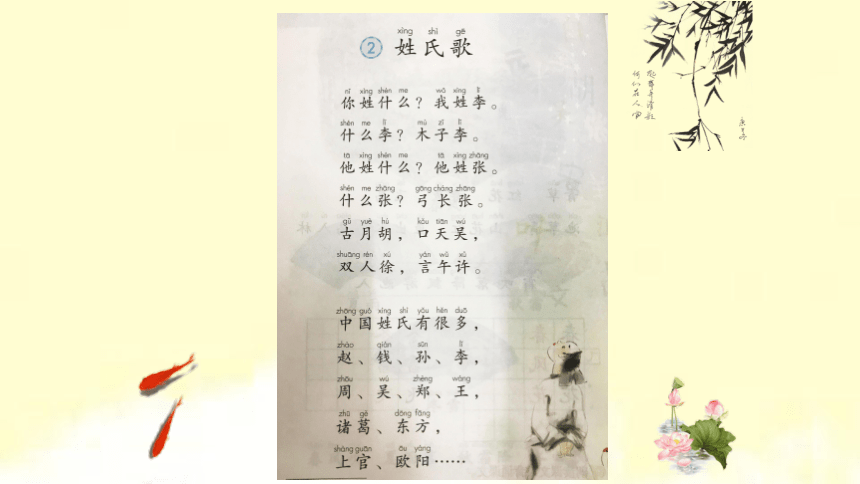 xìng shì gē
② 姓氏歌
nǐ xìng shén me wǒ xìng lǐ
你姓什么？我姓李。
shén me lǐ mù zǐ lǐ
什么李？木子李。
tā xìng shén me tā xìng zhāng
他姓什么？他姓张。
shén me zhāng gōng cháng zhāng
什么张？弓长张。
gǔ yuè hú kǒu tiān wú
古月胡，口天吴，
shuāng rén xú yán wǔ xǔ
双人徐，言午许。
zhōng guó xìng shì yǒu hěn duō
中国姓氏有很多，
zhào qián sūn lǐ
赵、钱、孙、李，
zhōu wú zhèng wáng
周、吴、郑、王，
zhū gě dōng fāng
诸葛、东方，
shàng guān ōu yáng
上官、欧阳……